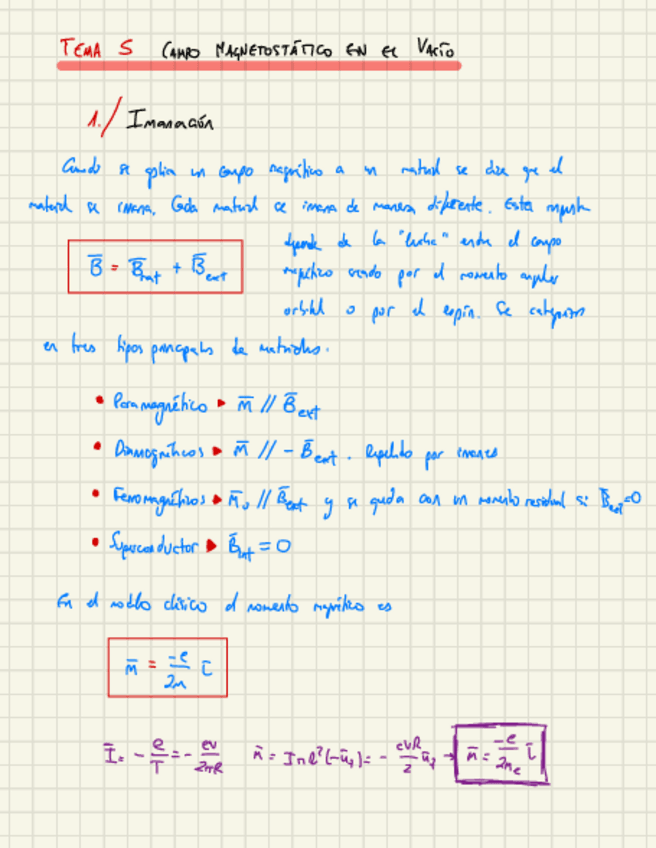 TEMA 5 CAMPO MAGNETOSTÁTICO EN EL VACÍO
1./ Imanación
Cuando se aplica un campo magnético a un material se dice que el
material se imana. Cada material se imana de manera diferente. Esta
depende de la "lucha" entre el campo
B̄ = B̄int + B̄ext
magnético creado por el momento angular
orbital o por el espín. Se
en tres tipos principales de materiales.
• Paramagnético ▶ m̄ // B̄ext
• Diamagnéticos ▶ m̄ // - B̄ext. Repelido por imanes
• Ferromagnéticos ▶ // B̄ext y se queda con un momento residual si B̄ext=0
• Superconductor ▶ B̄int = 0
En el modelo clásico el momento magnético es
m̄ = -e/2m L̄
Ī = - e/T = - ev/2πR m̄ = IπR²(-ū) = - evR/2 ū → m̄ = -e/2me L̄